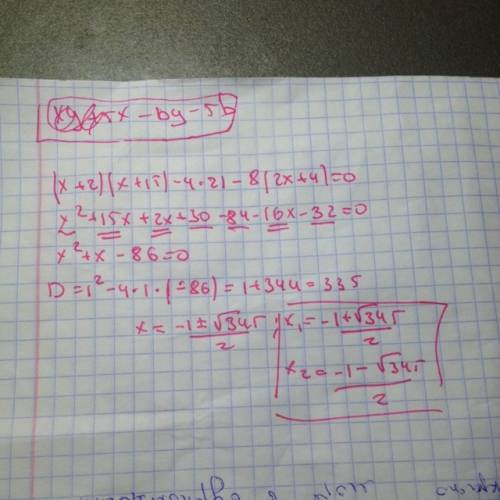 5x - by - 5b
(x+2)(x+15) - 4·21 - 8(2x+4)=0
x² + 15x + 2x + 30 - 84 - 16x - 32 = 0
x² + x - 86 = 0
D = 1² - 4·1·(-86) = 1 + 344 = 335
x = (-1 ± √345)/2 ; x₁ = (-1 + √345)/2
x₂ = (-1 - √345)/2